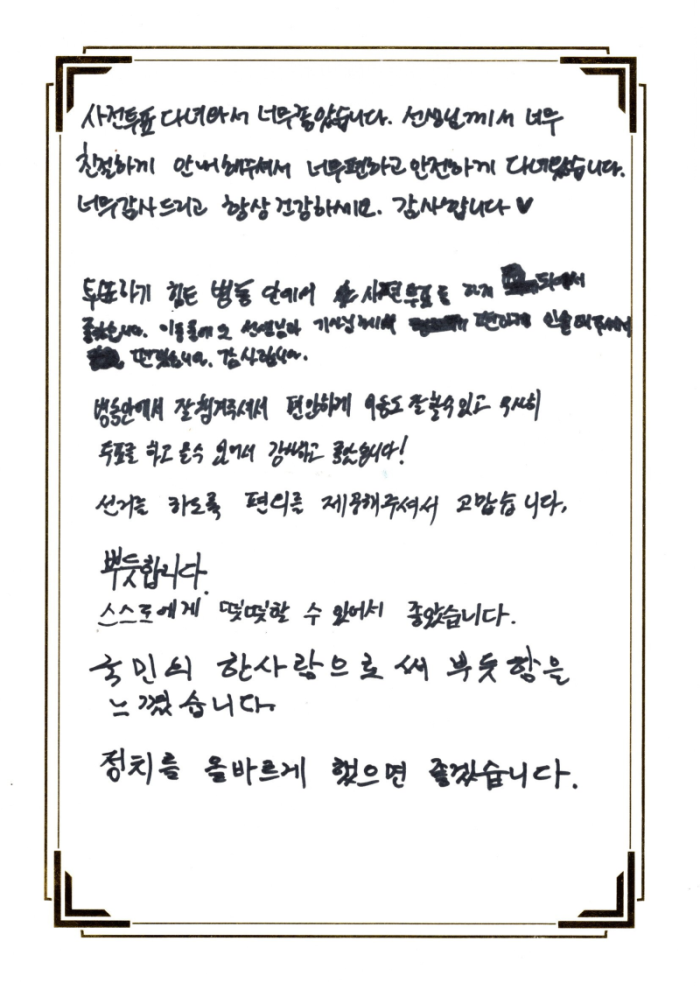 사전투표 다녀와서 너무좋았습니다. 선생님께서 너무
친절하게 안내해주셔서 너무편하고 안전하게 다녀왔습니다.
너무감사드리고 항상 건강하세요. 감사합니다 ♥
투표하기 힘든 병동 안에서 사전투표를 하게 되어서
좋았습니다. 이동할때도 선생님과 편하게 인솔해주셔서
편했습니다. 감사합니다.
병동안에서 잘챙겨주셔서 편안하게 이동도 잘할수있고 무사히
투표를 하고 올수 있어서 감사하고 좋았습니다!
선거를 하도록 편의를 제공해주셔서 고맙습니다.
뿌듯합니다.
스스로에게 떳떳할 수 있어서 좋았습니다.
국민의 한사람으로써 뿌듯함을
느꼈습니다.
정치를 올바르게 했으면 좋겠습니다.